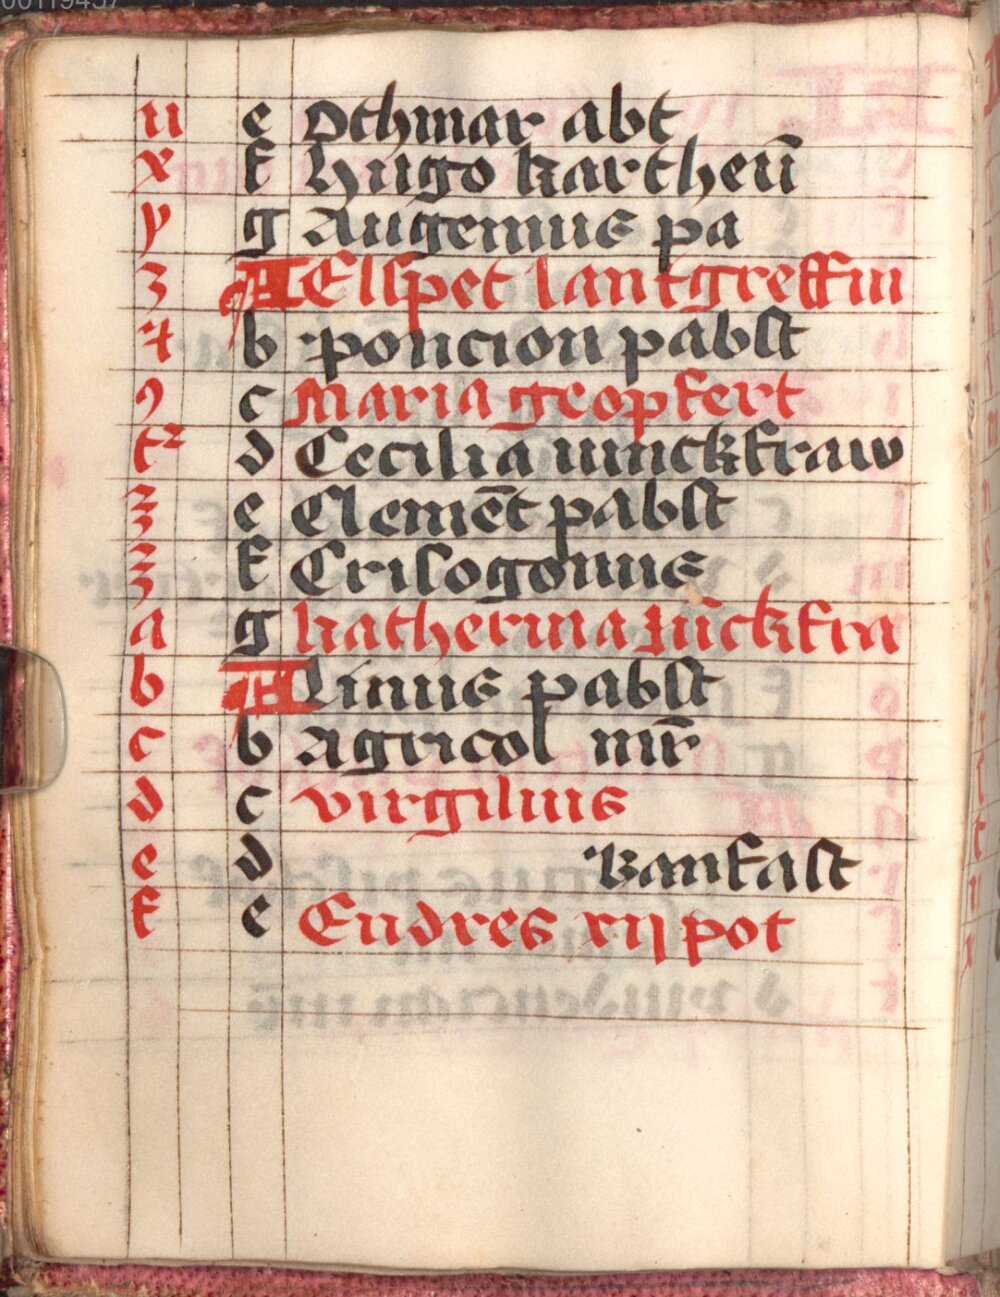 00119457
u e Othmar abt
x f Hugo kartheũ
y g Augenius pa
z A Elspet lantgreffin
b poncion pabst
9 c Maria geopfert
d Cecilia iunckfraw
z e Clemēt pabst
z f Crisogonus
a g katherina iūckfra
b A Linus pabst
c b Agricol mr̄
d c virgilius
e d Banfast
f e Endres xij pot